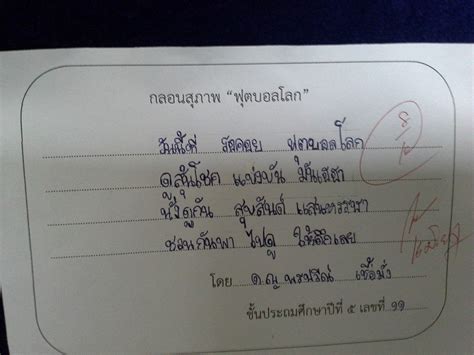 กลอนสุภาพ "ฟุตบอลโลก"
วันนี้ที่ รอคอย ฟุตบอลโลก
8/10
ดูลุ้นโชค แข่งขัน มันเฮฮา
นั่งดูกัน สุขสันต์ แสนหรรษา
ชวนกันพา ไปดู ให้ลึกเลย
โดย ด.ญ. พรปวีณ์ เชื้อมั่ง
ชั้นประถมศึกษาปีที่ ๕ เลขที่ ๑๑